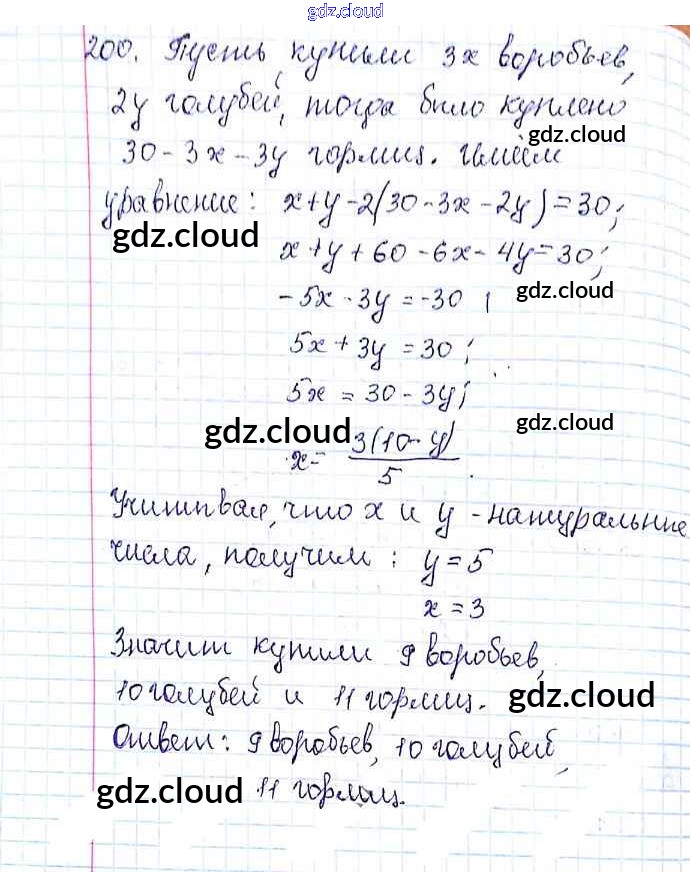 gdz.cloud
200. Пусть купили 3x воробьев,
2y голубей, тогда было куплено
gdz.cloud
30 - 3x - 3y горлиц. Имеем
уравнение: x + y - 2(30 - 3x - 2y) = 30;
gdz.cloud
x + y + 60 - 6x - 4y = 30;
-5x - 3y = -30 ;
gdz.cloud
5x + 3y = 30;
5x = 30 - 3y;
gdz.cloud
gdz.cloud
x = 3(10 - y)/5.
Учитывая, что x и y - натуральные
числа, получим: y = 5
x = 3
Значит купили 9 воробьев,
10 голубей и 11 горлиц.
gdz.cloud
Ответ: 9 воробьев, 10 голубей,
gdz.cloud
11 горлиц.